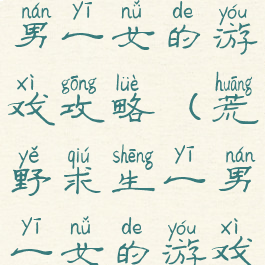 nán yī nǚ de yóu
男一女的游
xì gōng lüè huāng
戏攻略（荒
yě qiú shēng yī nán
野求生一男
yī nǚ de yóu xì
一女的游戏